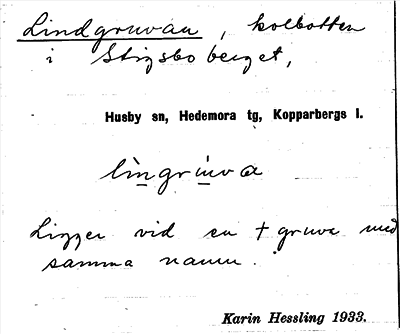 Lindgruvan, kolbotten
i Stigsboberget,
Husby sn, Hedemora tg, Kopparbergs l.
lìngrúva
Ligger vid en † gruva med
samma namn.
Karin Hessling 1933.